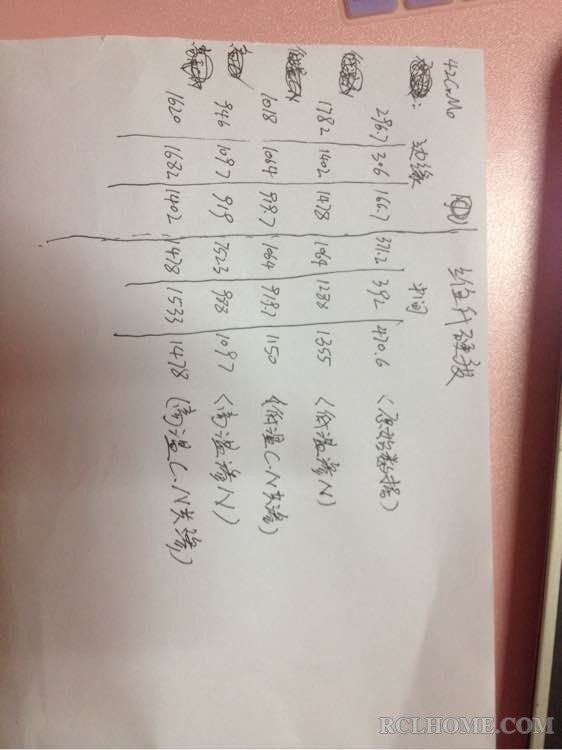 42CrMo 维氏硬度
边缘 中间
296.7 306 166.7 371.2 392 470.6 (原始数据)
1782 1402 1478 1064 1288 1355 (低温渗N)
1018 1064 918.7 1064 918.7 1150 (低温C.N共渗)
946 1097 919 752.3 988 1097 (高温渗N)
1620 1682 1402 1478 1533 1478 (高温C.N共渗)
RCLHOME.COM